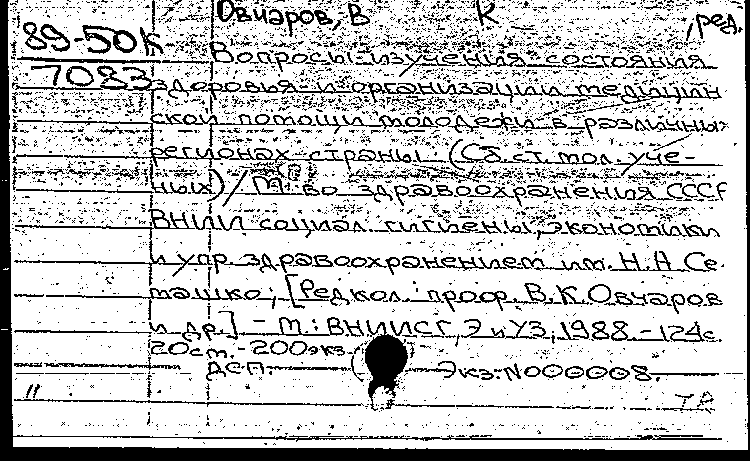 Овчаров, В К , ред.
89-50к Вопросы изучения состояния
7083 здоровья и организации медицин
ской помощи молодежи в различных
регионах страны. (Сб.ст.мол. уче-
ных) / М-во здравоохранения СССР
ВНИИ социал. гигиены, экономики
и упр. здравоохранением им. Н.А Се
машко; [Редкол.: проф. В.К.Овчаров
и др.] - М.: ВНИИСГ, Э и УЗ, 1988.-124с.
20см.-200экз.
ДСП. Экз.N000008.